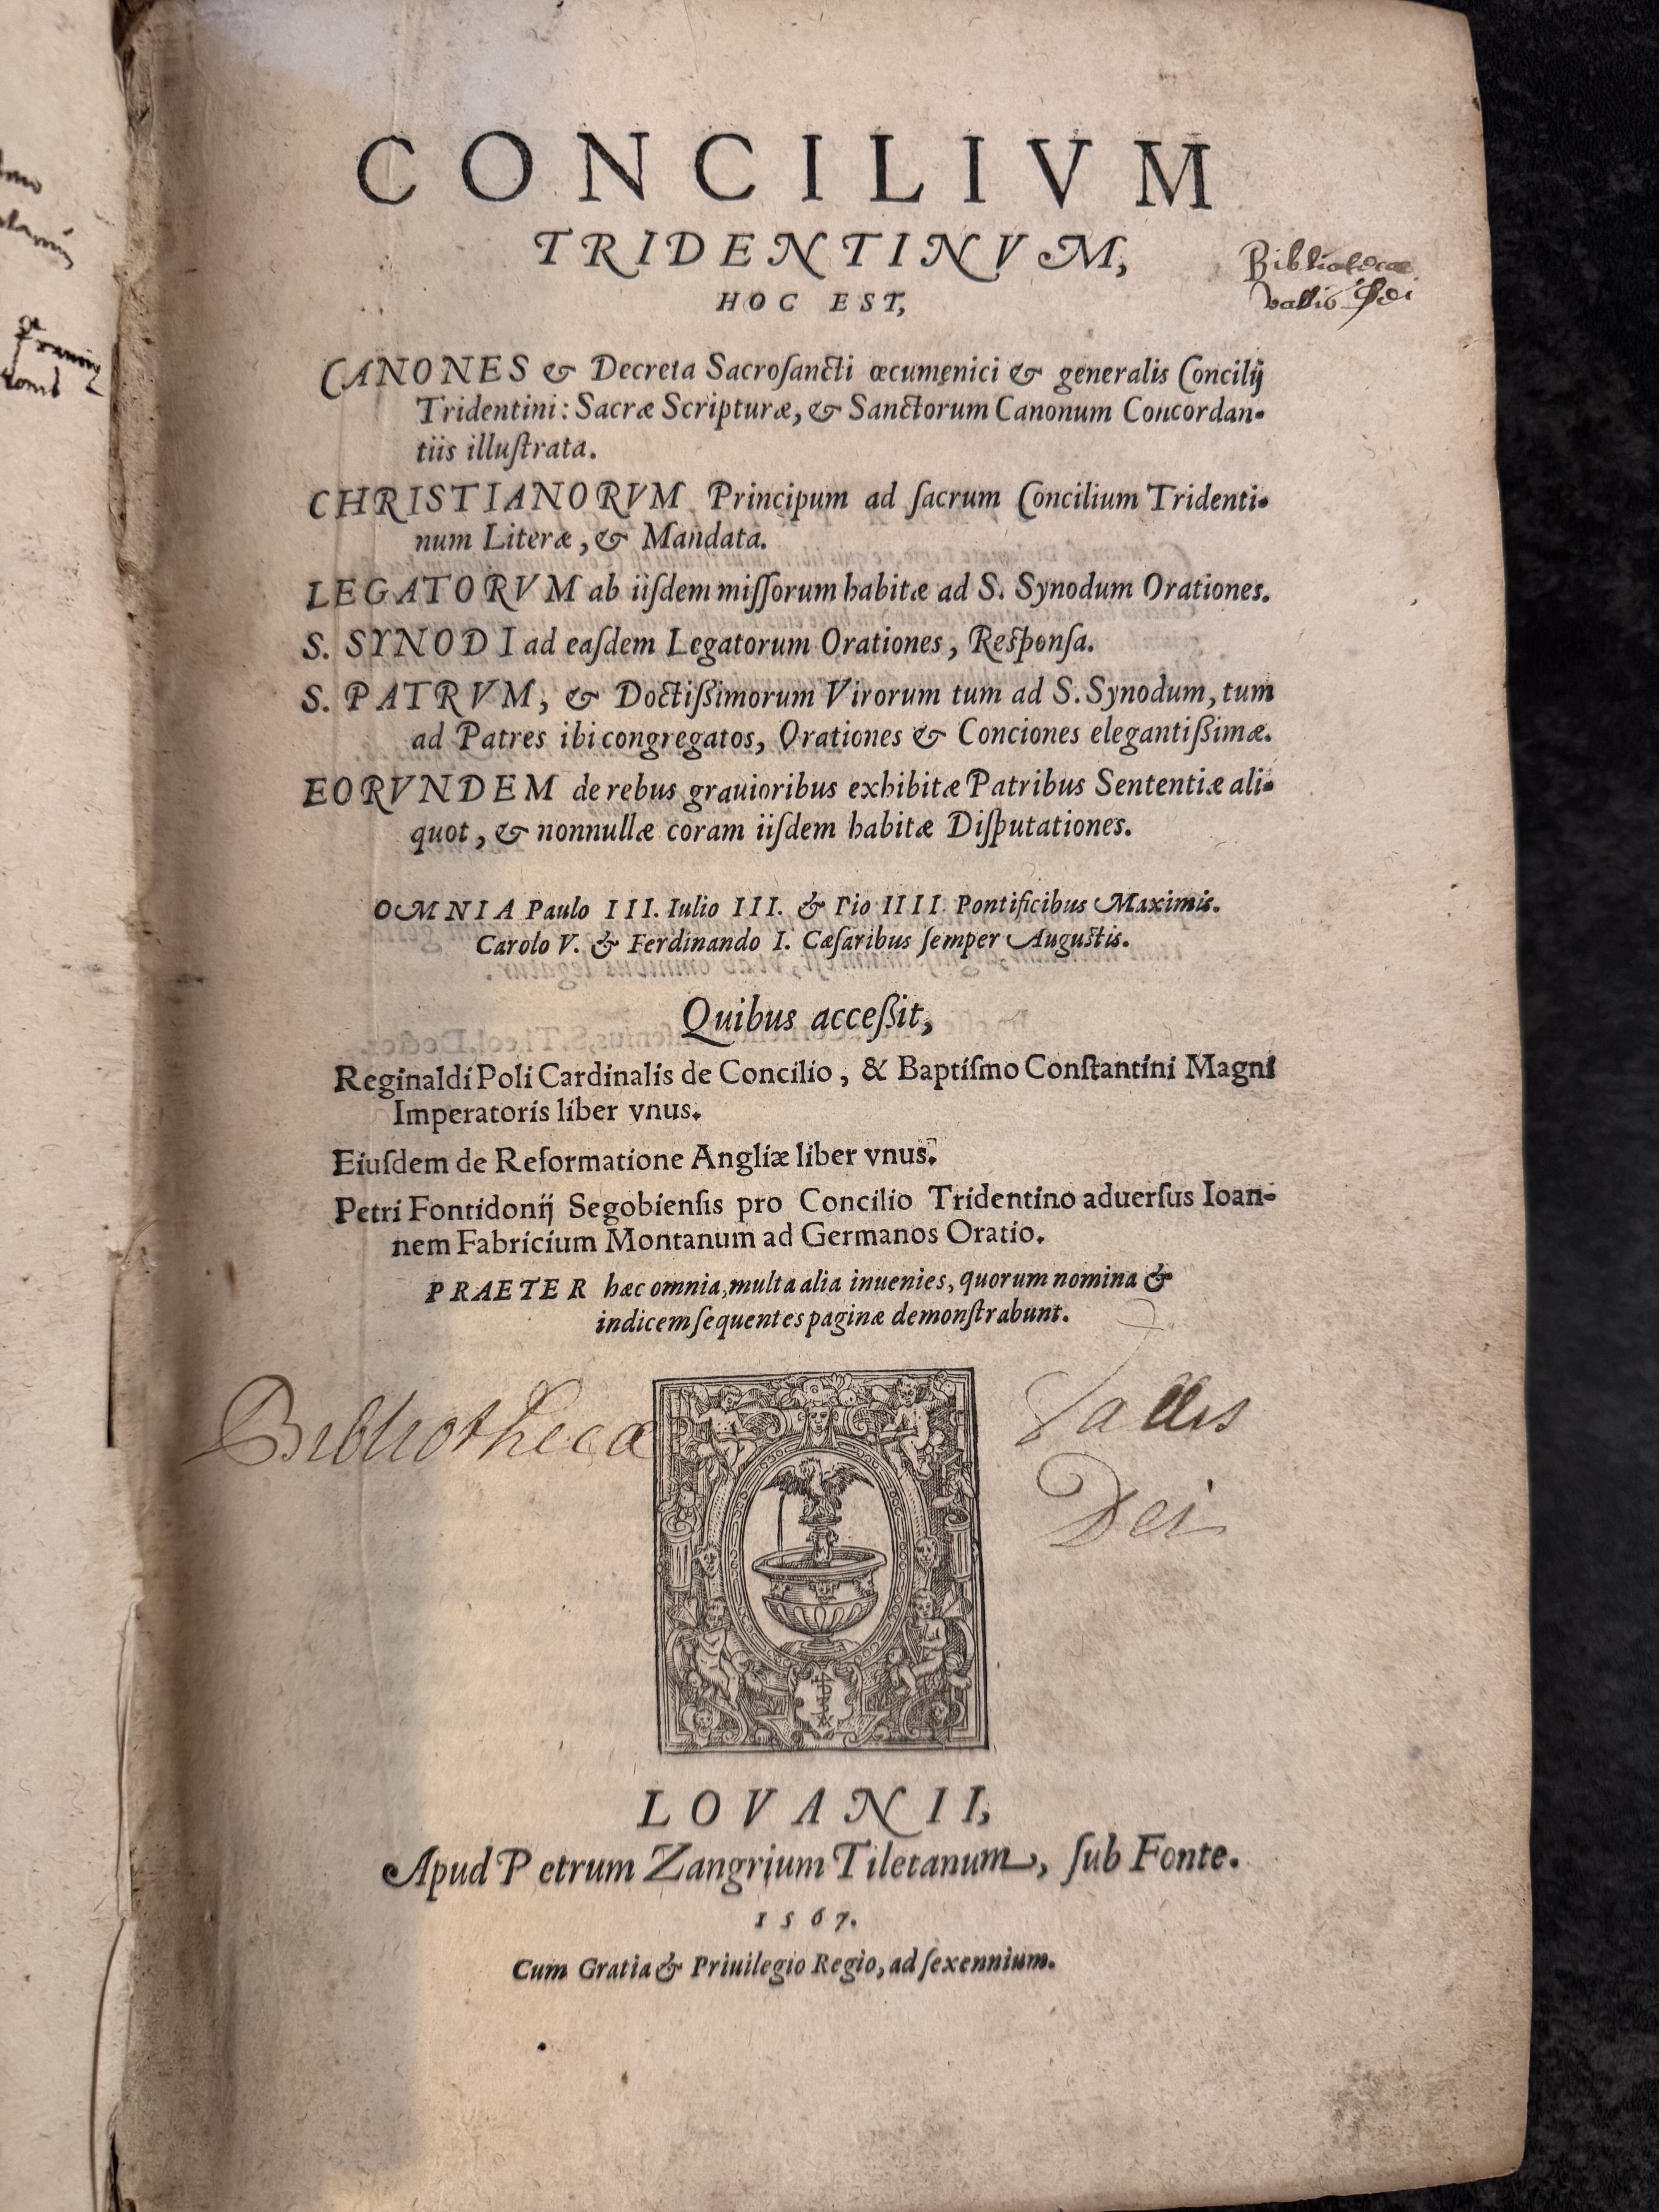 CONCILIVM
TRIDENTINVM,
HOC EST,
Bibliotecae
Vallis Dei
CANONES & Decreta Sacroſancti œcumenici & generalis Concilij
Tridentini: Sacræ Scripturæ, & Sanctorum Canonum Concordan-
tiis illuſtrata.
CHRISTIANORVM Principum ad ſacrum Concilium Tridenti-
num Literæ, & Mandata.
LEGATORVM ab iiſdem miſſorum habitæ ad S. Synodum Orationes.
S. SYNODI ad eaſdem Legatorum Orationes, Reſponſa.
S. PATRVM, & Doctißimorum Virorum tum ad S. Synodum, tum
ad Patres ibi congregatos, Orationes & Conciones elegantißimæ.
EORVNDEM de rebus grauioribus exhibitæ Patribus Sententiæ ali-
quot, & nonnullæ coram iiſdem habitæ Diſputationes.
OMNIA Paulo III. Iulio III. & Pio IIII. Pontificibus Maximis.
Carolo V. & Ferdinando I. Cæſaribus ſemper Auguſtis.
Quibus acceßit,
Reginaldi Poli Cardinalis de Concilio, & Baptiſmo Conſtantini Magni
Imperatoris liber vnus.
Eiuſdem de Reformatione Angliæ liber vnus.
Petri Fontidonij Segobienſis pro Concilio Tridentino aduerſus Ioan-
nem Fabricium Montanum ad Germanos Oratio.
PRAETER hæc omnia, multa alia inuenies, quorum nomina &
indicem ſequentes paginæ demonſtrabunt.
Bibliotheca Vallis
Dei
LOVANII,
Apud Petrum Zangrium Tiletanum, ſub Fonte.
1567.
Cum Gratia & Priuilegio Regio, ad ſexennium.